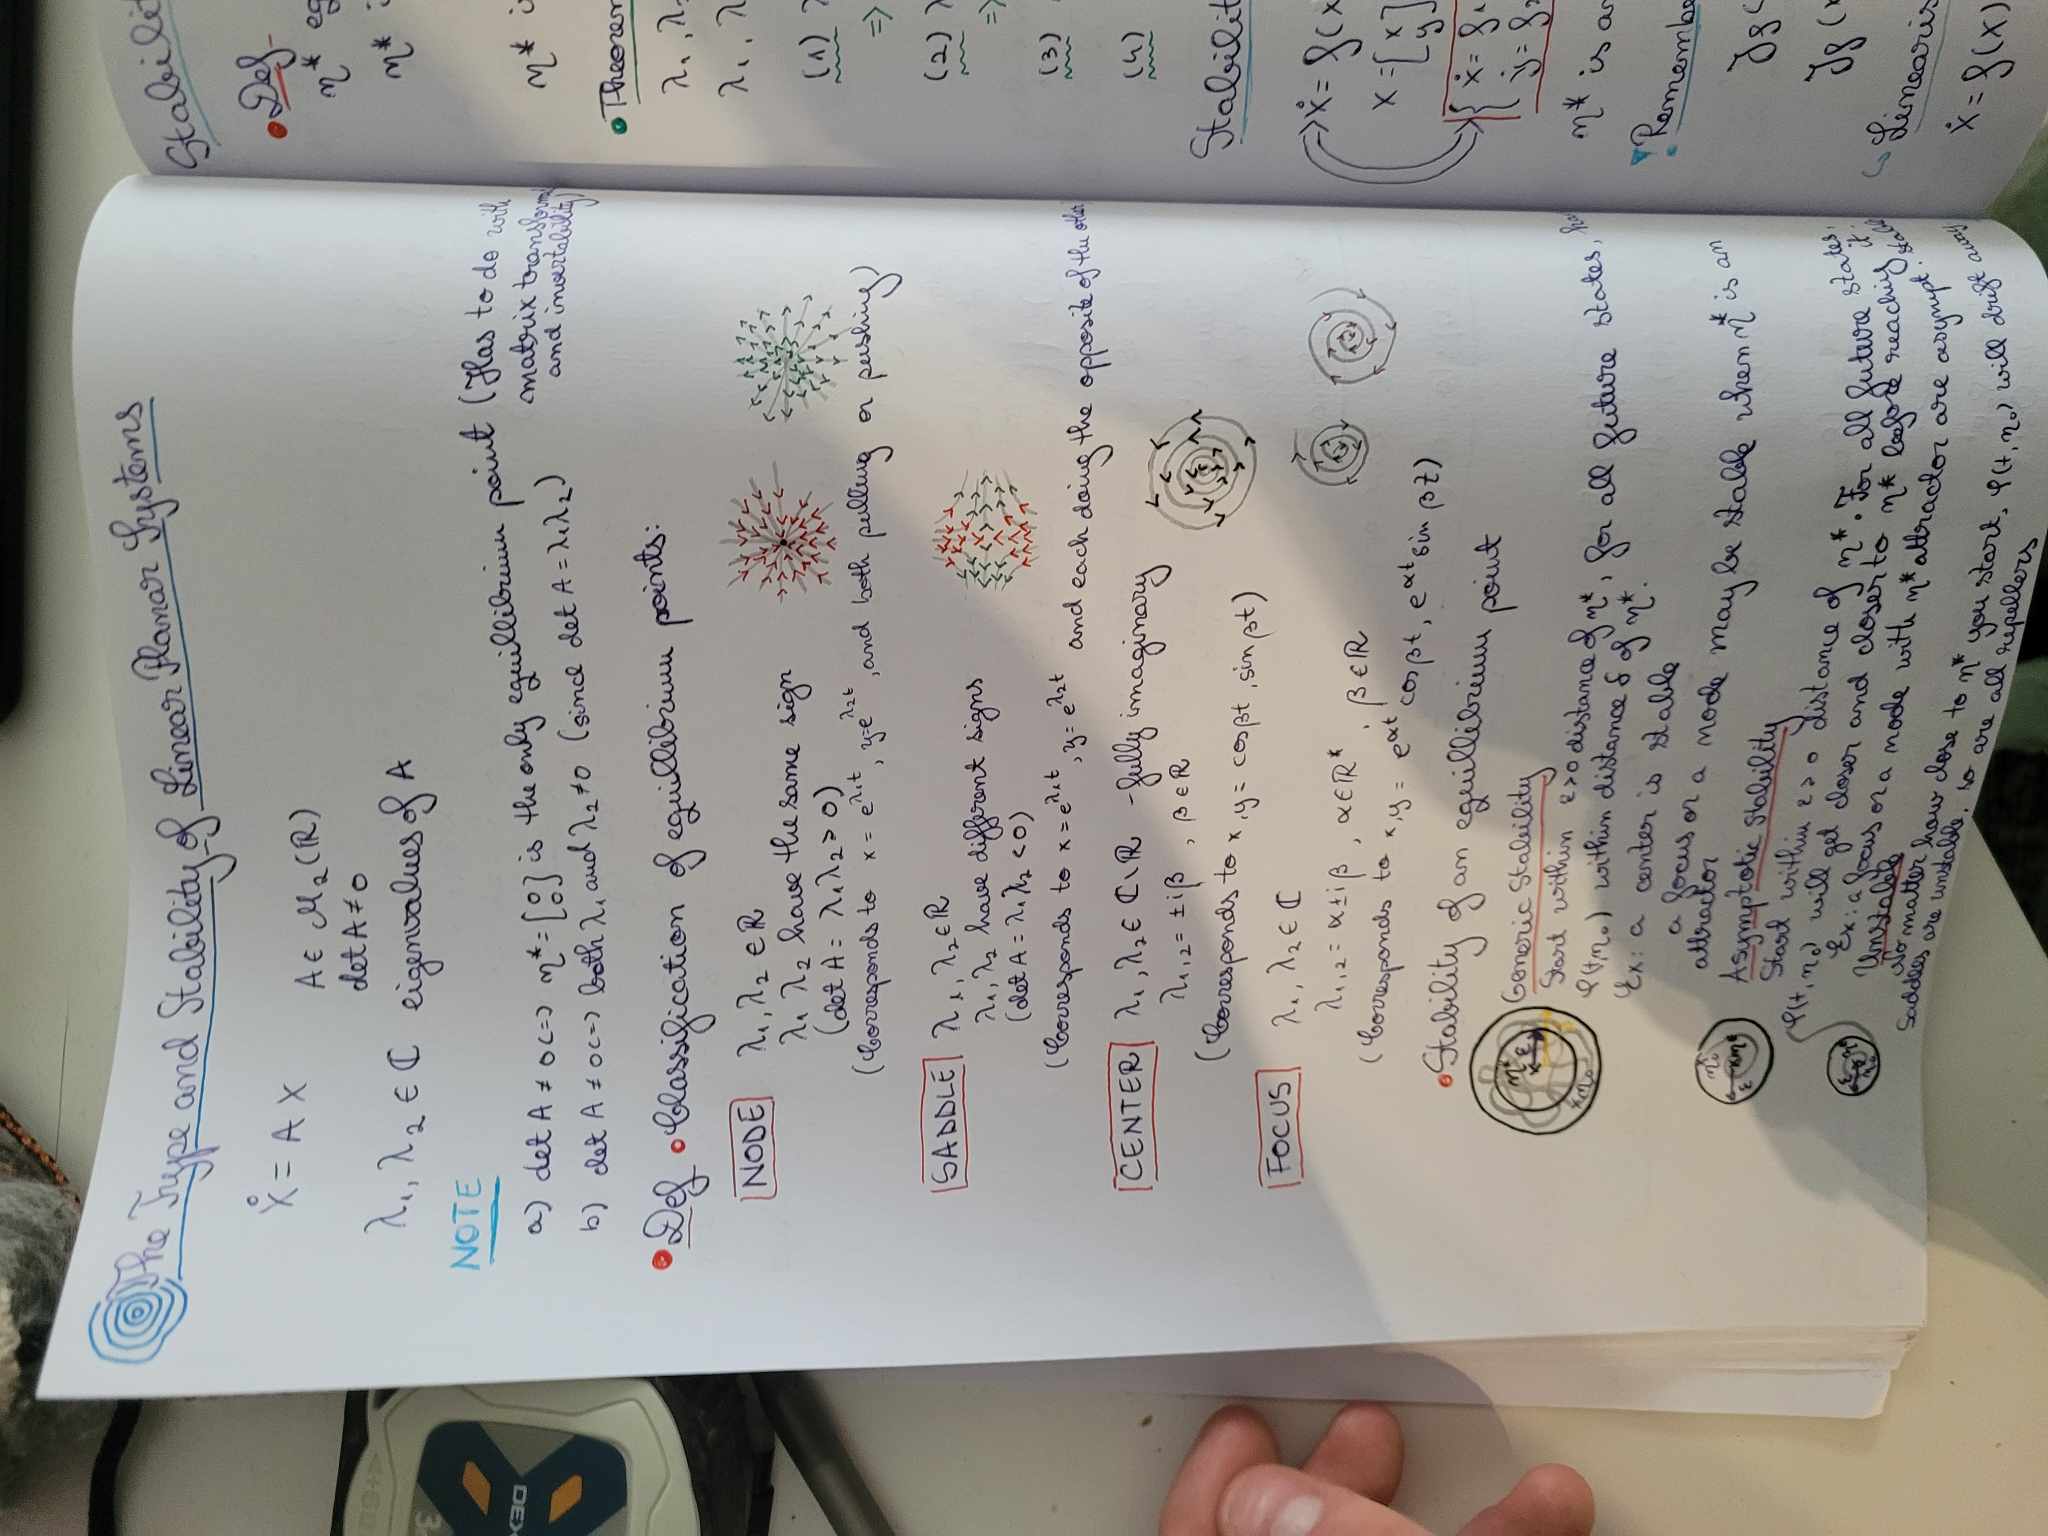 The Type and Stability of Linear Planar Systems
Ẋ = A X
A ∈ M₂(ℝ)
det A ≠ 0
λ₁, λ₂ ∈ ℂ eigenvalues of A
NOTE
a) det A ≠ 0 <=> η* = [0 0] is the only equillibrium point (Has to do with
matrix transform
and invertability)
b) det A ≠ 0 <=> both λ₁ and λ₂ ≠ 0 (sincd det A = λ₁λ₂)
• Def • Classification of equillibrium points:
NODE λ₁, λ₂ ∈ ℝ
λ₁ λ₂ have the same sign
(det A = λ₁λ₂ > 0)
(Corresponds to x = e^λ₁t, y = e^λ₂t, and both pulling or pushing)
SADDLE λ₁, λ₂ ∈ ℝ
λ₁, λ₂ have different signs
(det A = λ₁λ₂ < 0)
(Corresponds to x = e^λ₁t, y = e^λ₂t and each doing the opposite of the other
CENTER λ₁, λ₂ ∈ ℂ \ ℝ - fully imaginary
λ₁,₂ = ± i β, β ∈ ℝ
(Corresponds to x, y = cos βt, sin βt)
FOCUS λ₁, λ₂ ∈ ℂ
λ₁,₂ = α ± i β, α ∈ ℝ*, β ∈ ℝ
(Corresponds to x, y = e^αt cos βt, e^αt sin βt)
• Stability of an equillibrium point
Generic Stability
Start within ε > 0 distance of η*, for all future states,
φ(t, η₀) within distance δ of η*.
Ex: a center is stable
a focus or a node may be stable when η* is an
attractor
Asymptotic Stability
Start within ε > 0 distance of η*. For all future states,
φ(t, η₀) will get closer and closer to η* reaching it.
Ex: a focus or a node with η* attractor are asympt. stable
Unstable
No matter how close to η* you start, φ(t, η₀) will drift away
Saddles are unstable, so are all repellers
Stabilit
• Def
η* eg
η* i
η* i
• Theorem
λ₁, λ₂
λ₁, λ
(1) λ
=>
(2) λ
=>
(3)
(4)
Stabilit
Ẋ = f(x
X = [x y]
{ ẋ = f₁
ẏ = f₂
η* is an
Remembe
Jf(
Jf(
Linearis
Ẋ = f(X)
DEX